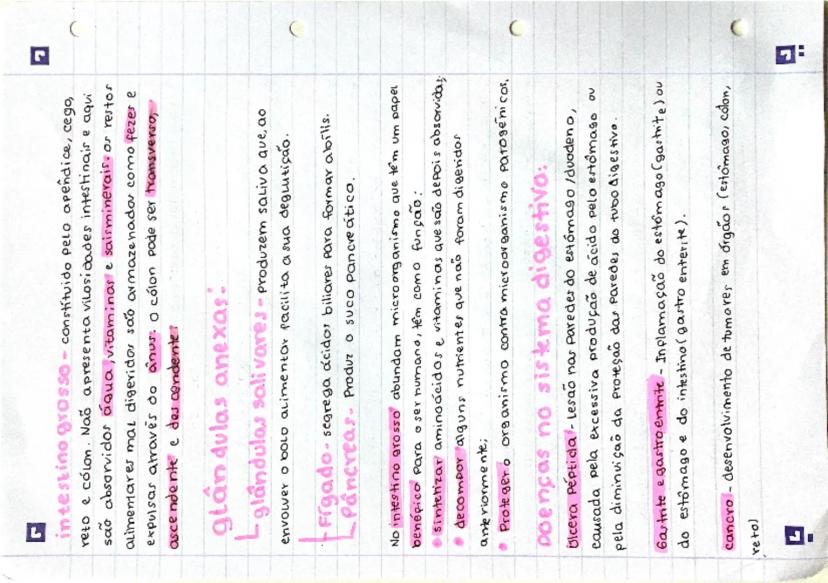 intestino grosso - constituído pelo apêndice, cego,
reto e cólon. Naõ apresenta vilosidades intestinais e aqui
são absorvidos água, vitaminas e sais minerais. Os restos
alimentares mal digeridos são armazenados como fezes e
expulsas através do ânus. O cólon pode ser transverso,
ascendente e descendente.
glândulas anexas:
glândulas salivares - Produzem saliva que, ao
envolver o bolo alimentar facilita a sua deglutição.
Fígado - segrega ácidos biliares para formar a bílis.
Pâncreas - Produz o suco pancreático.
No intestino grosso abundam microorganismo que têm um papel
benéfico para o ser humano, têm como função:
• Sintetizar aminoácidos e vitaminas que são depois absorvidas;
• decompor alguns nutrientes que naõ foram digeridos
anteriormente;
• Proteger o organismo contra microorganismo patogénicos.
Doenças no sistema digestivo:
Úlcera Péptida - Lesão nas paredes do estômago/duodeno,
causada pela excessiva produção de ácido pelo estômago ou
pela diminuição da proteção das paredes do tubo digestivo.
Gastrite e gastroentrite - Inflamação do estômago (gastrite) ou
do estômago e do intestino (gastro enterite).
cancro - desenvolvimento de tumores em órgãos (estômago, cólon,
reto)